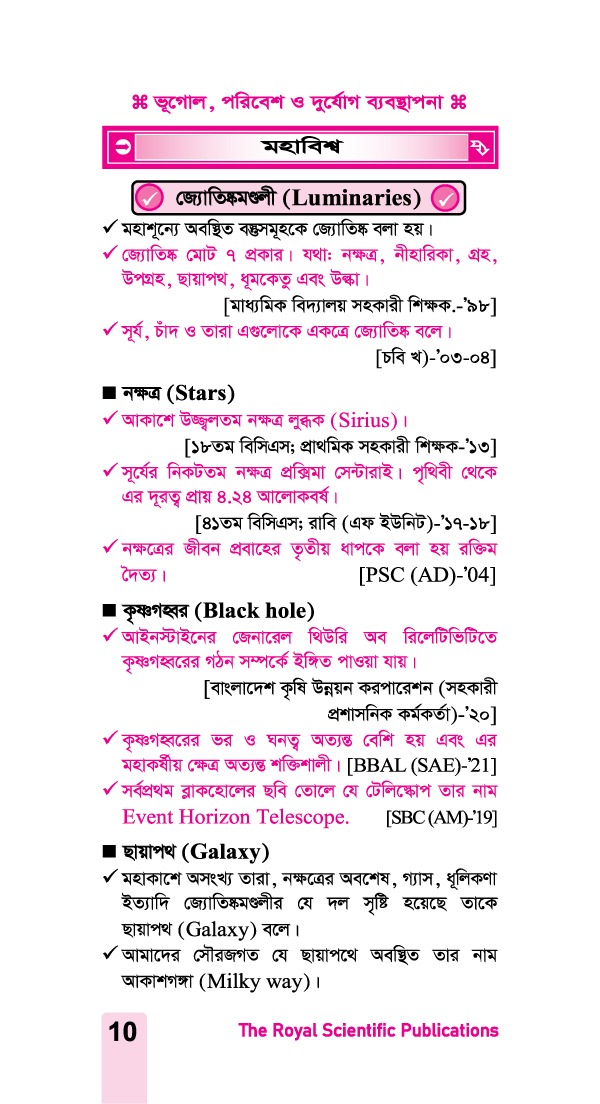 ⌘ ভূগোল, পরিবেশ ও দুর্যোগ ব্যবস্থাপনা ⌘
মহাবিশ্ব
জ্যোতিষ্কমণ্ডলী (Luminaries)
✓ মহাশূন্যে অবস্থিত বস্তুসমূহকে জ্যোতিষ্ক বলা হয়।
✓ জ্যোতিষ্ক মোট ৭ প্রকার। যথা: নক্ষত্র, নীহারিকা, গ্রহ,
উপগ্রহ, ছায়াপথ, ধূমকেতু এবং উল্কা।
[মাধ্যমিক বিদ্যালয় সহকারী শিক্ষক.-’৯৮]
✓ সূর্য, চাঁদ ও তারা এগুলোকে একত্রে জ্যোতিষ্ক বলে।
[চবি খ)-’০৩-০৪]
■ নক্ষত্র (Stars)
✓ আকাশে উজ্জ্বলতম নক্ষত্র লুব্ধক (Sirius)।
[১৮তম বিসিএস; প্রাথমিক সহকারী শিক্ষক-’১৩]
✓ সূর্যের নিকটতম নক্ষত্র প্রক্সিমা সেন্টারাই। পৃথিবী থেকে
এর দূরত্ব প্রায় ৪.২৪ আলোকবর্ষ।
[৪১তম বিসিএস; রাবি (এফ ইউনিট)-’১৭-১৮]
✓ নক্ষত্রের জীবন প্রবাহের তৃতীয় ধাপকে বলা হয় রক্তিম
দৈত্য। [PSC (AD)-’04]
■ কৃষ্ণগহ্বর (Black hole)
✓ আইনস্টাইনের জেনারেল থিউরি অব রিলেটিভিটিতে
কৃষ্ণগহ্বরের গঠন সম্পর্কে ইঙ্গিত পাওয়া যায়।
[বাংলাদেশ কৃষি উন্নয়ন করপারেশন (সহকারী
প্রশাসনিক কর্মকর্তা)-’২০]
✓ কৃষ্ণগহ্বরের ভর ও ঘনত্ব অত্যন্ত বেশি হয় এবং এর
মহাকর্ষীয় ক্ষেত্র অত্যন্ত শক্তিশালী। [BBAL (SAE)-’21]
✓ সর্বপ্রথম ব্লাকহোলের ছবি তোলে যে টেলিস্কোপ তার নাম
Event Horizon Telescope. [SBC (AM)-’19]
■ ছায়াপথ (Galaxy)
✓ মহাকাশে অসংখ্য তারা, নক্ষত্রের অবশেষ, গ্যাস, ধূলিকণা
ইত্যাদি জ্যোতিষ্কমণ্ডলীর যে দল সৃষ্টি হয়েছে তাকে
ছায়াপথ (Galaxy) বলে।
✓ আমাদের সৌরজগত যে ছায়াপথে অবস্থিত তার নাম
আকাশগঙ্গা (Milky way)।
10 The Royal Scientific Publications